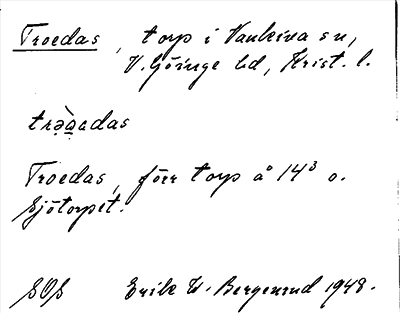 Troedas, torp i Vankiva sn,
V. Göinge hd, Krist. l.
Troedas, förr torp å 14³ o.
Sjötorpet.
SOS Erik W. Bergenrud 1948.